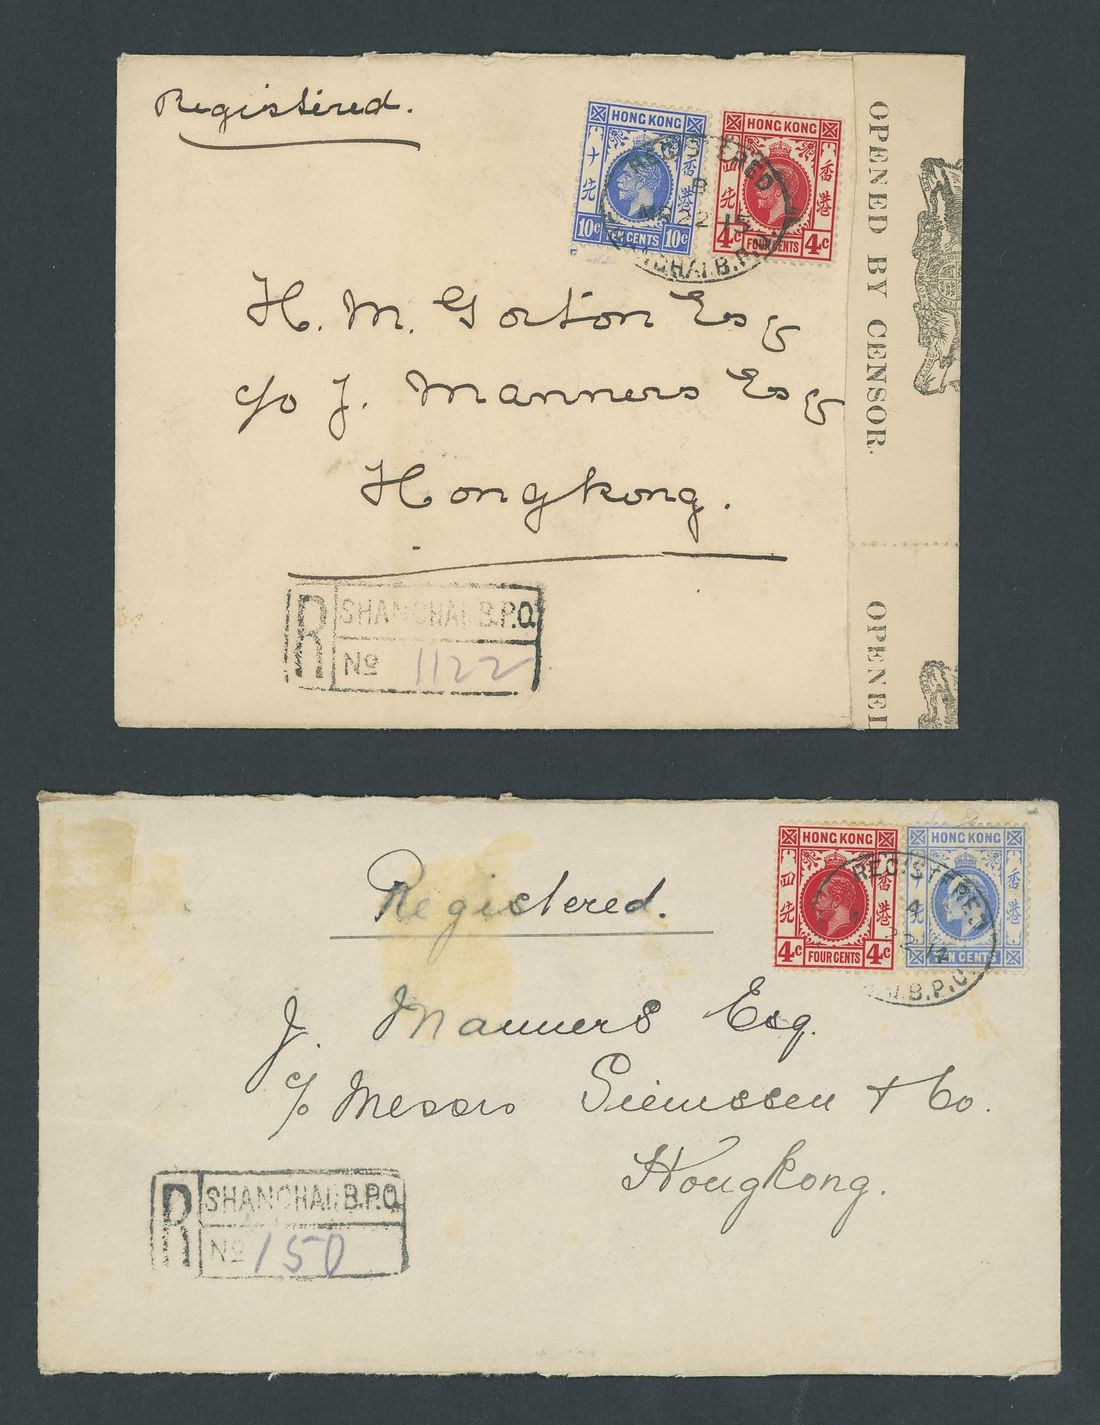 Registered.
HONG KONG
十先
香港
10c TEN CENTS 10c
HONG KONG
四先
香港
4c FOUR CENTS 4c
REGISTERED
B
MR 22 15
SHANGHAI B.P.O.
OPENED BY CENSOR.
OPENED
H. M. Gorton Esq
c/o J. Manners Esq
Hongkong.
R SHANGHAI B.P.O.
No 1122
HONG KONG
四先
香港
4c FOUR CENTS 4c
HONG KONG
十先
香港
TEN CENTS
REGISTERED
22 14
B.P.O.
Registered.
J. Manners Esq.
c/o Messrs Siemssen & Co.
Hongkong.
R SHANGHAI B.P.O.
No 150